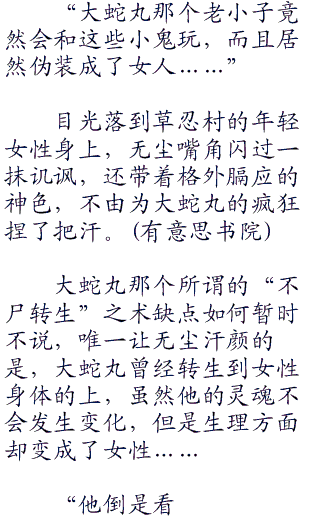 “大蛇丸那个老小子竟
然会和这些小鬼玩，而且居
然伪装成了女人……”
目光落到草忍村的年轻
女性身上，无尘嘴角闪过一
抹讥讽，还带着格外膈应的
神色，不由为大蛇丸的疯狂
捏了把汗。(有意思书院)
大蛇丸那个所谓的“不
尸转生”之术缺点如何暂时
不说，唯一让无尘汗颜的
是，大蛇丸曾经转生到女性
身体的上，虽然他的灵魂不
会发生变化，但是生理方面
却变成了女性……
“他倒是看